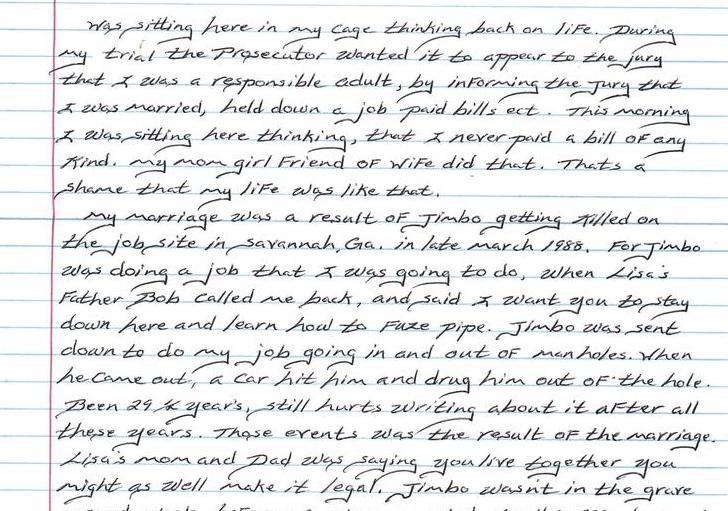 Was sitting here in my cage thinking back on life. During
my trial the Prosecutor wanted it to appear to the jury
that I was a responsible adult, by informing the Jury that
I was married, held down a job paid bills ect. This morning
I was sitting here thinking, that I never paid a bill of any
Kind. my mom girl Friend of wife did that. Thats a
shame that my life was like that.
My marriage was a result of Jimbo getting Killed on
the job site in Savannah, Ga. in late march 1988. For Jimbo
was doing a job that I was going to do, when Lisa's
Father Bob called me back, and said I want you to stay
down here and learn how to Fuze pipe. Jimbo was sent
down to do my job going in and out of man holes. When
he came out, a car hit him and drug him out of the hole.
Been 29 ½ year's, still hurts writing about it after all
these years. Those events was the result of the marriage.
Lisa's mom and Dad was saying you live together you
might as well make it legal. Jimbo wasn't in the grave